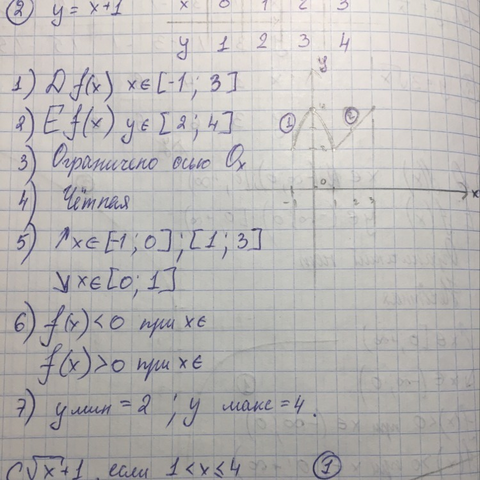 ② y = x+1
x 0 1 2 3
y 1 2 3 4
1) D f(x) x∈[-1; 3]
2) E f(x) y∈[2; 4]
3) Ограничено осью Ox
4) Чётная
5) ↗x∈[-1; 0]; [1; 3]
↘x∈[0; 1]
6) f(x)<0 при x∈
f(x)>0 при x∈
7) y мин = 2 ; y макс = 4.
√x+1, если 1<x≤4 ①
y
① ②
0
-1
x